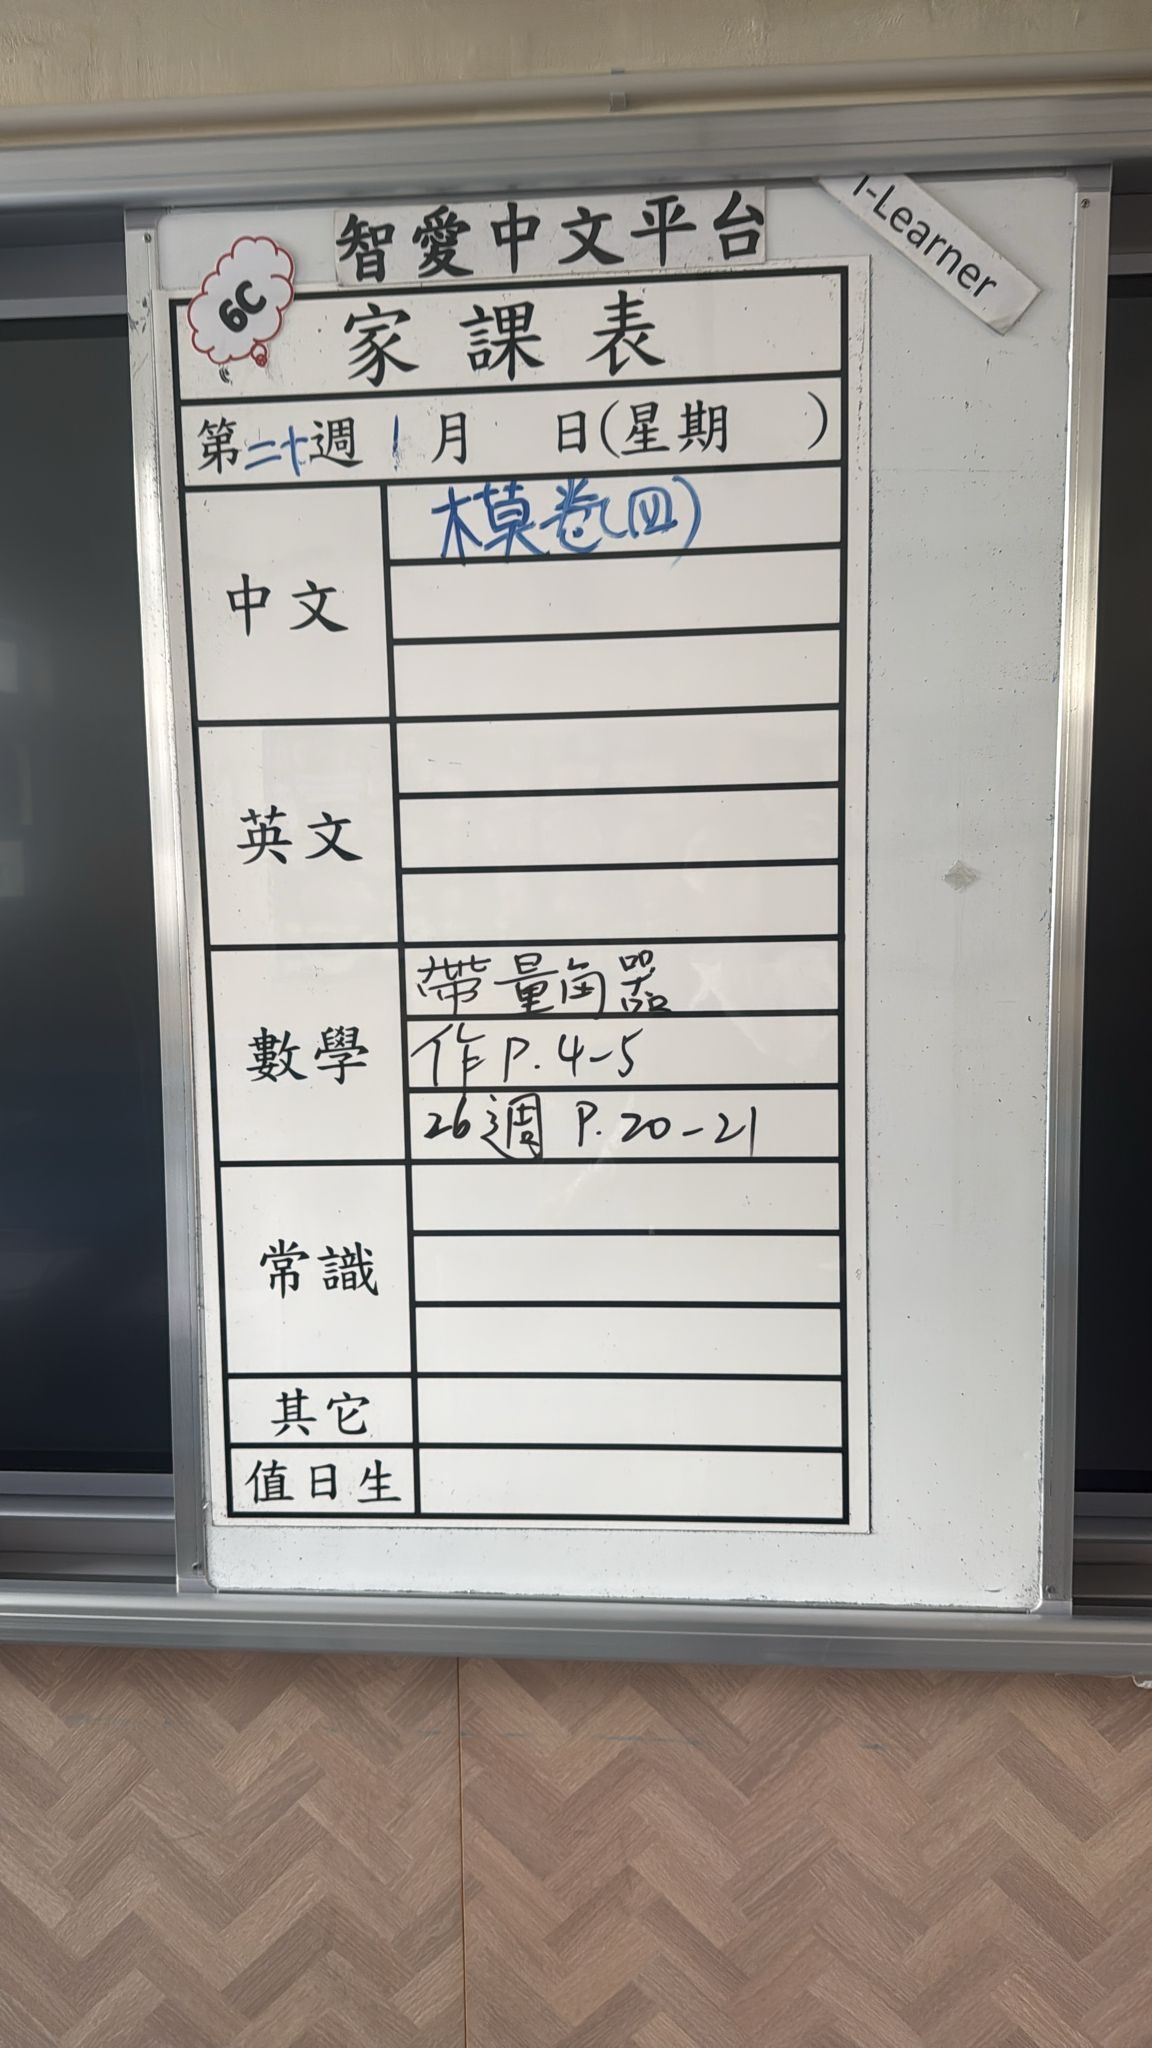 智愛中文平台
i-Learner
6C
家課表
第二十週 1月 日(星期 )
中文
模卷(四)
英文
數學
帶量角器
作P.4-5
26週 P.20-21
常識
其它
值日生